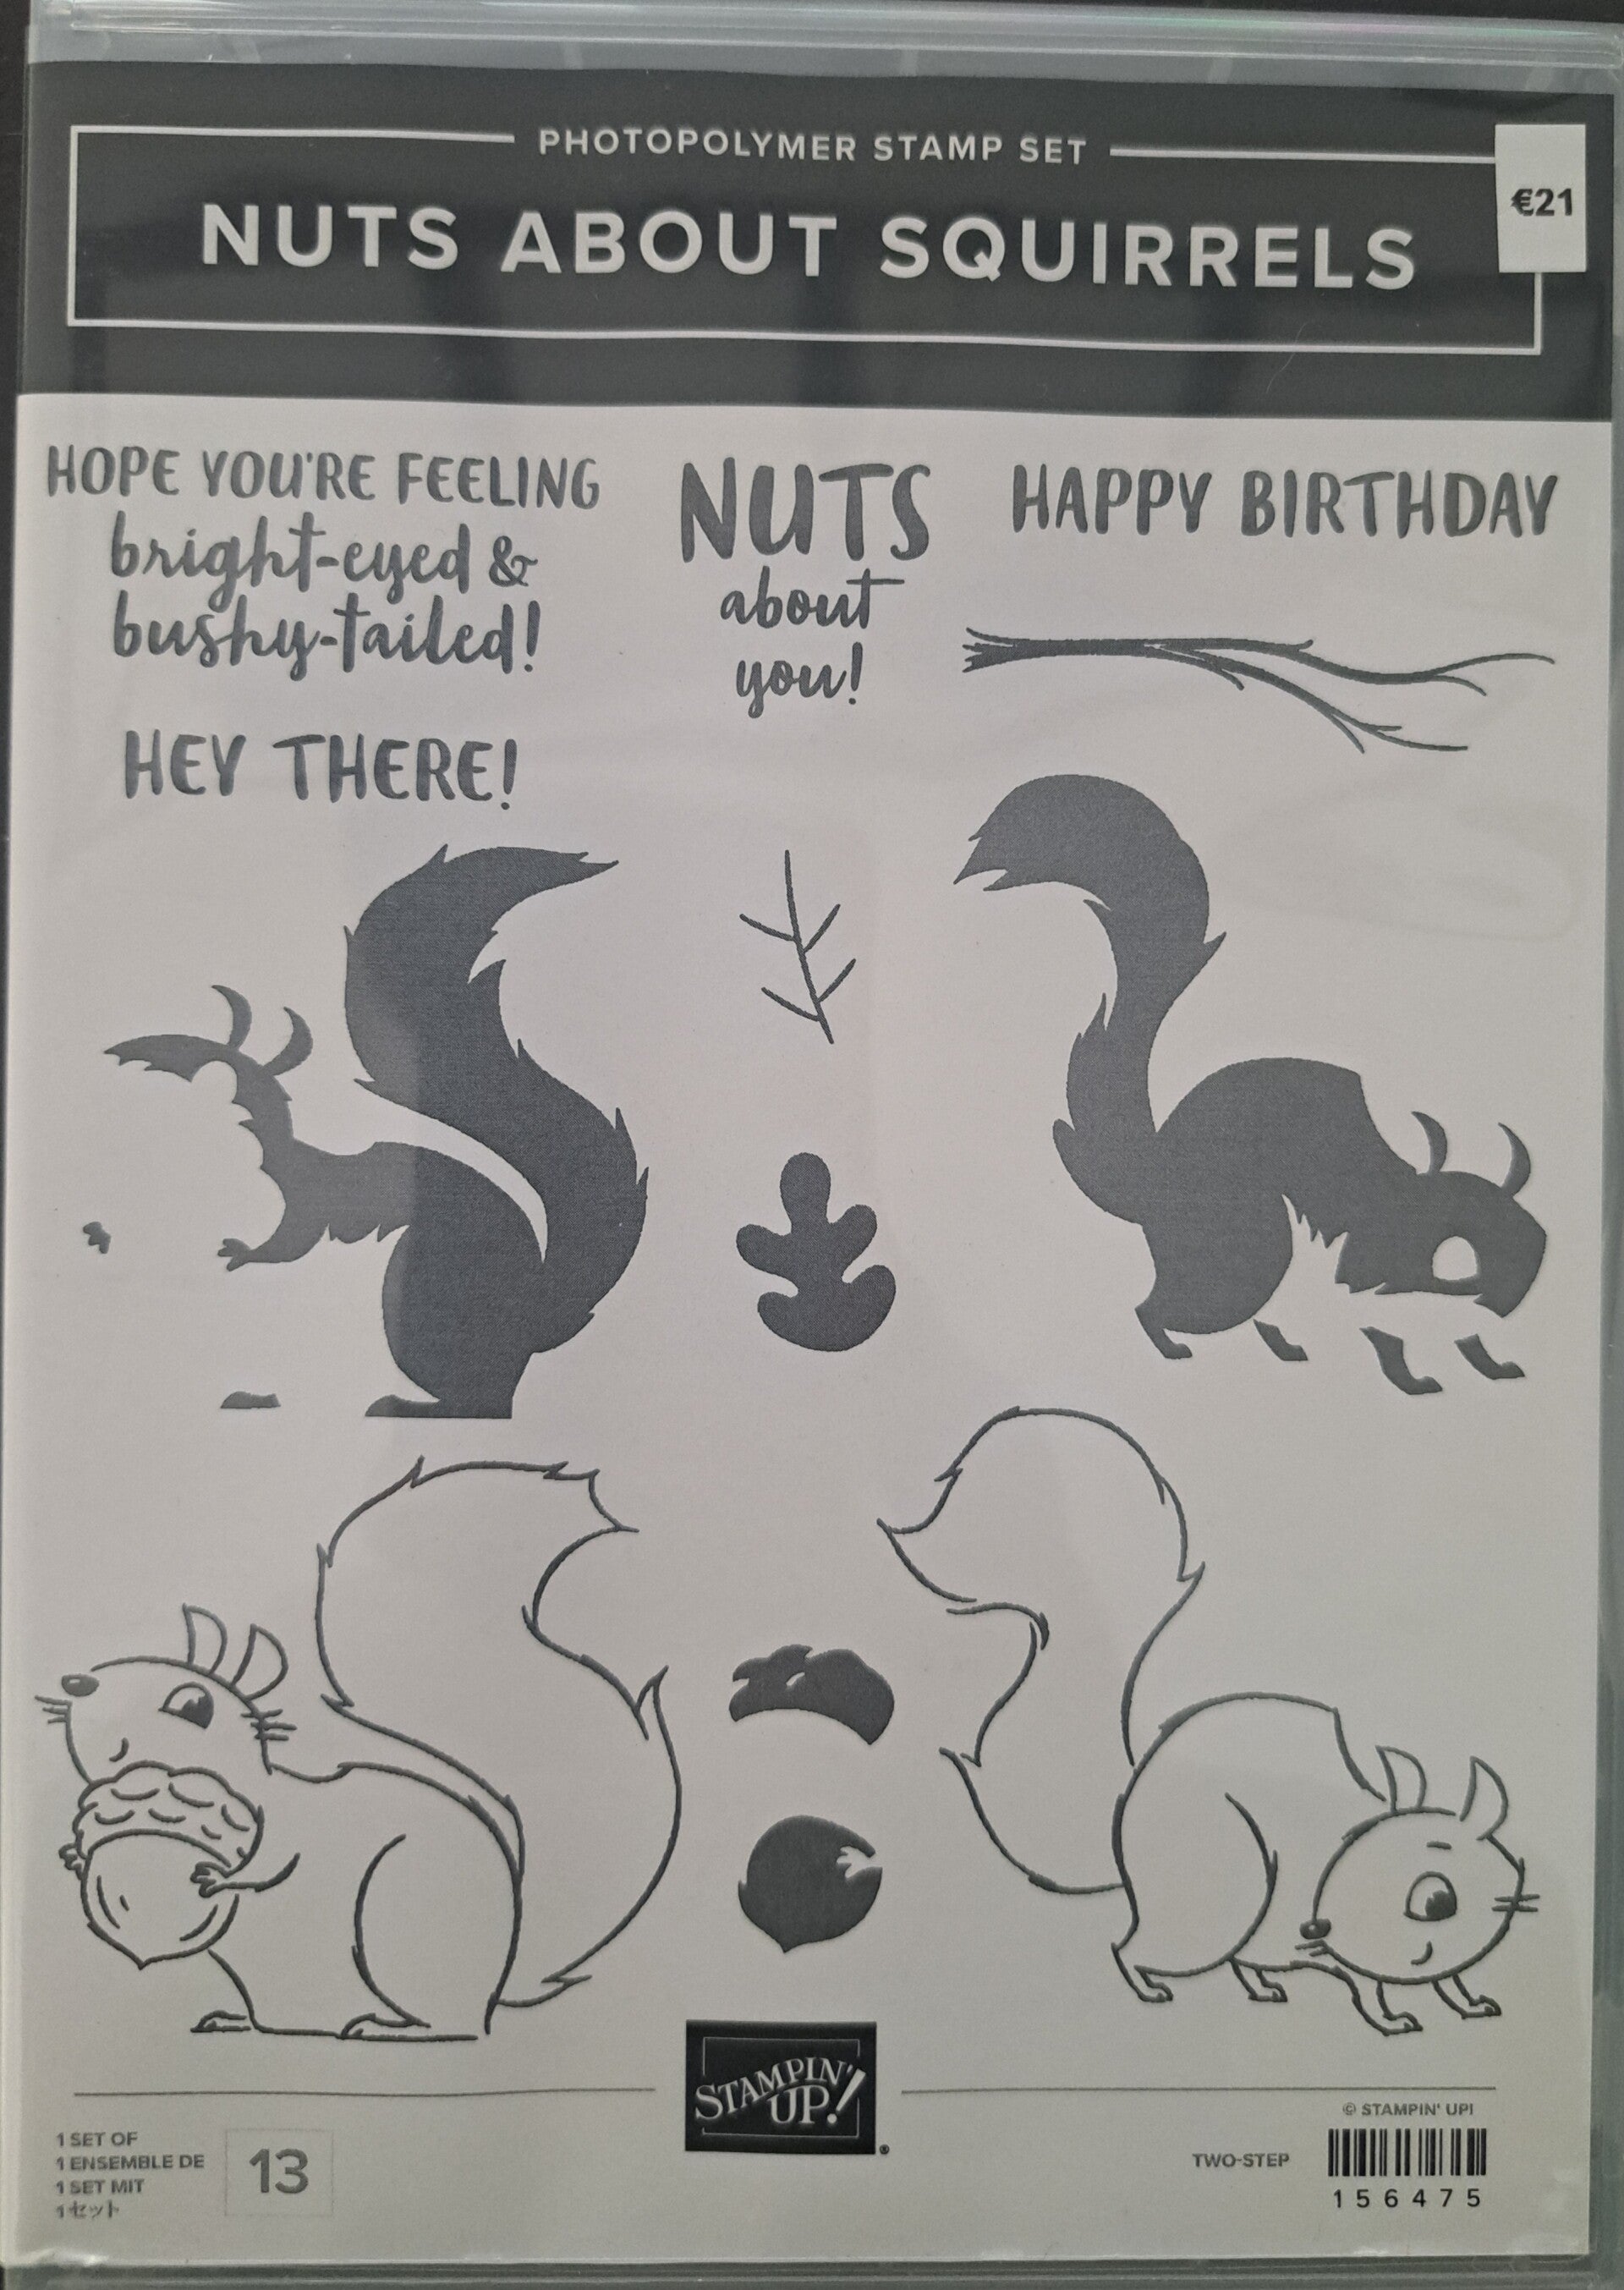 PHOTOPOLYMER STAMP SET
NUTS ABOUT SQUIRRELS
€21
HOPE YOU'RE FEELING
bright-eyed &
bushy-tailed!
NUTS
about
you!
HAPPY BIRTHDAY
HEY THERE!
STAMPIN'
UP!®
1 SET OF
1 ENSEMBLE DE
1 SET MIT
1セット
13
TWO-STEP
© STAMPIN' UP!
156475